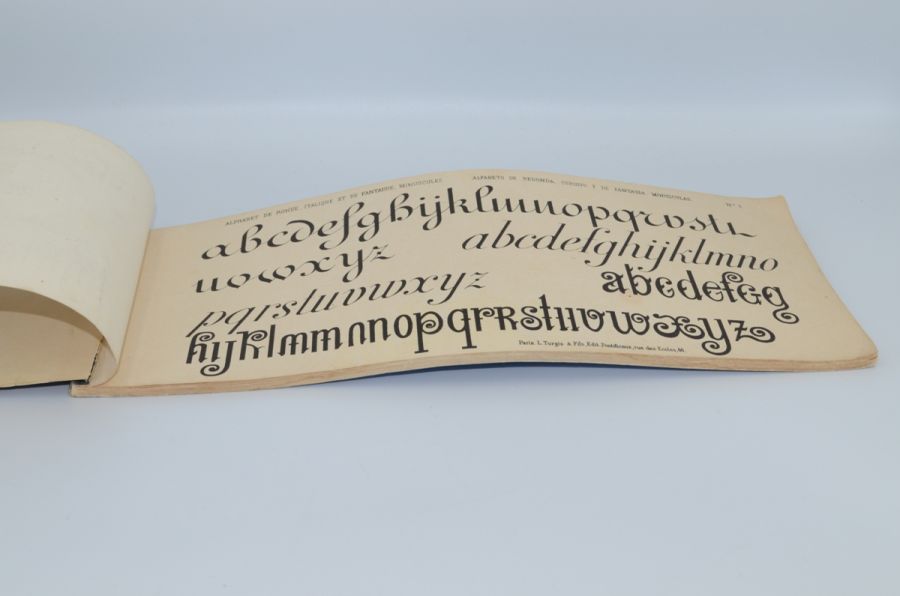 ALPHABET DE RONDE, ITALIQUE ET DE FANTAISIE, MINUSCULES. ALFABETO DE REDONDA, CURSIVO Y DE FANTASIA, MINUSCULAS. N° 1
abcdefghijklmnopqrvst
uvwxyz
abcdefghijklmno
pqrstuvwxyz
abcdefgg
hijklmmnnopqrrstuvwxyz
Paris. L. Turgis & Fils, Edit. Pontificaux, rue des Ecoles, 60.